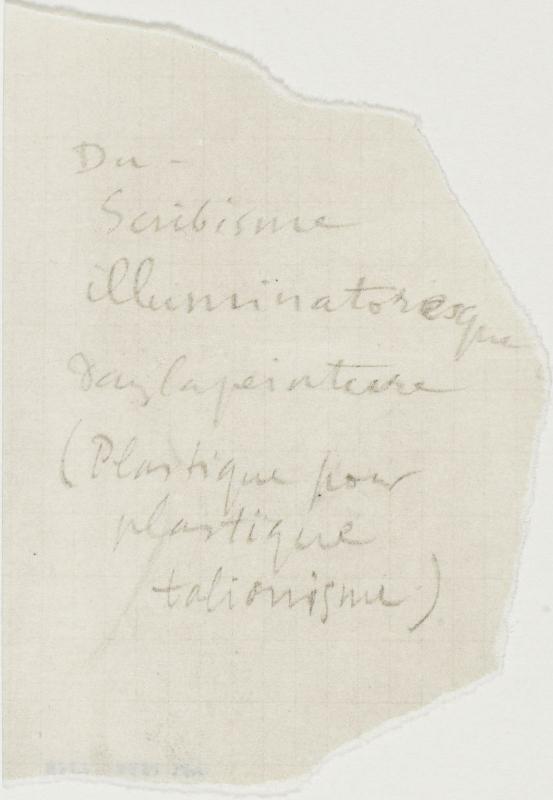 Du -
Scribisme
illuminatoresque
dans la peinture
(Plastique pour
plastique
talionisme)